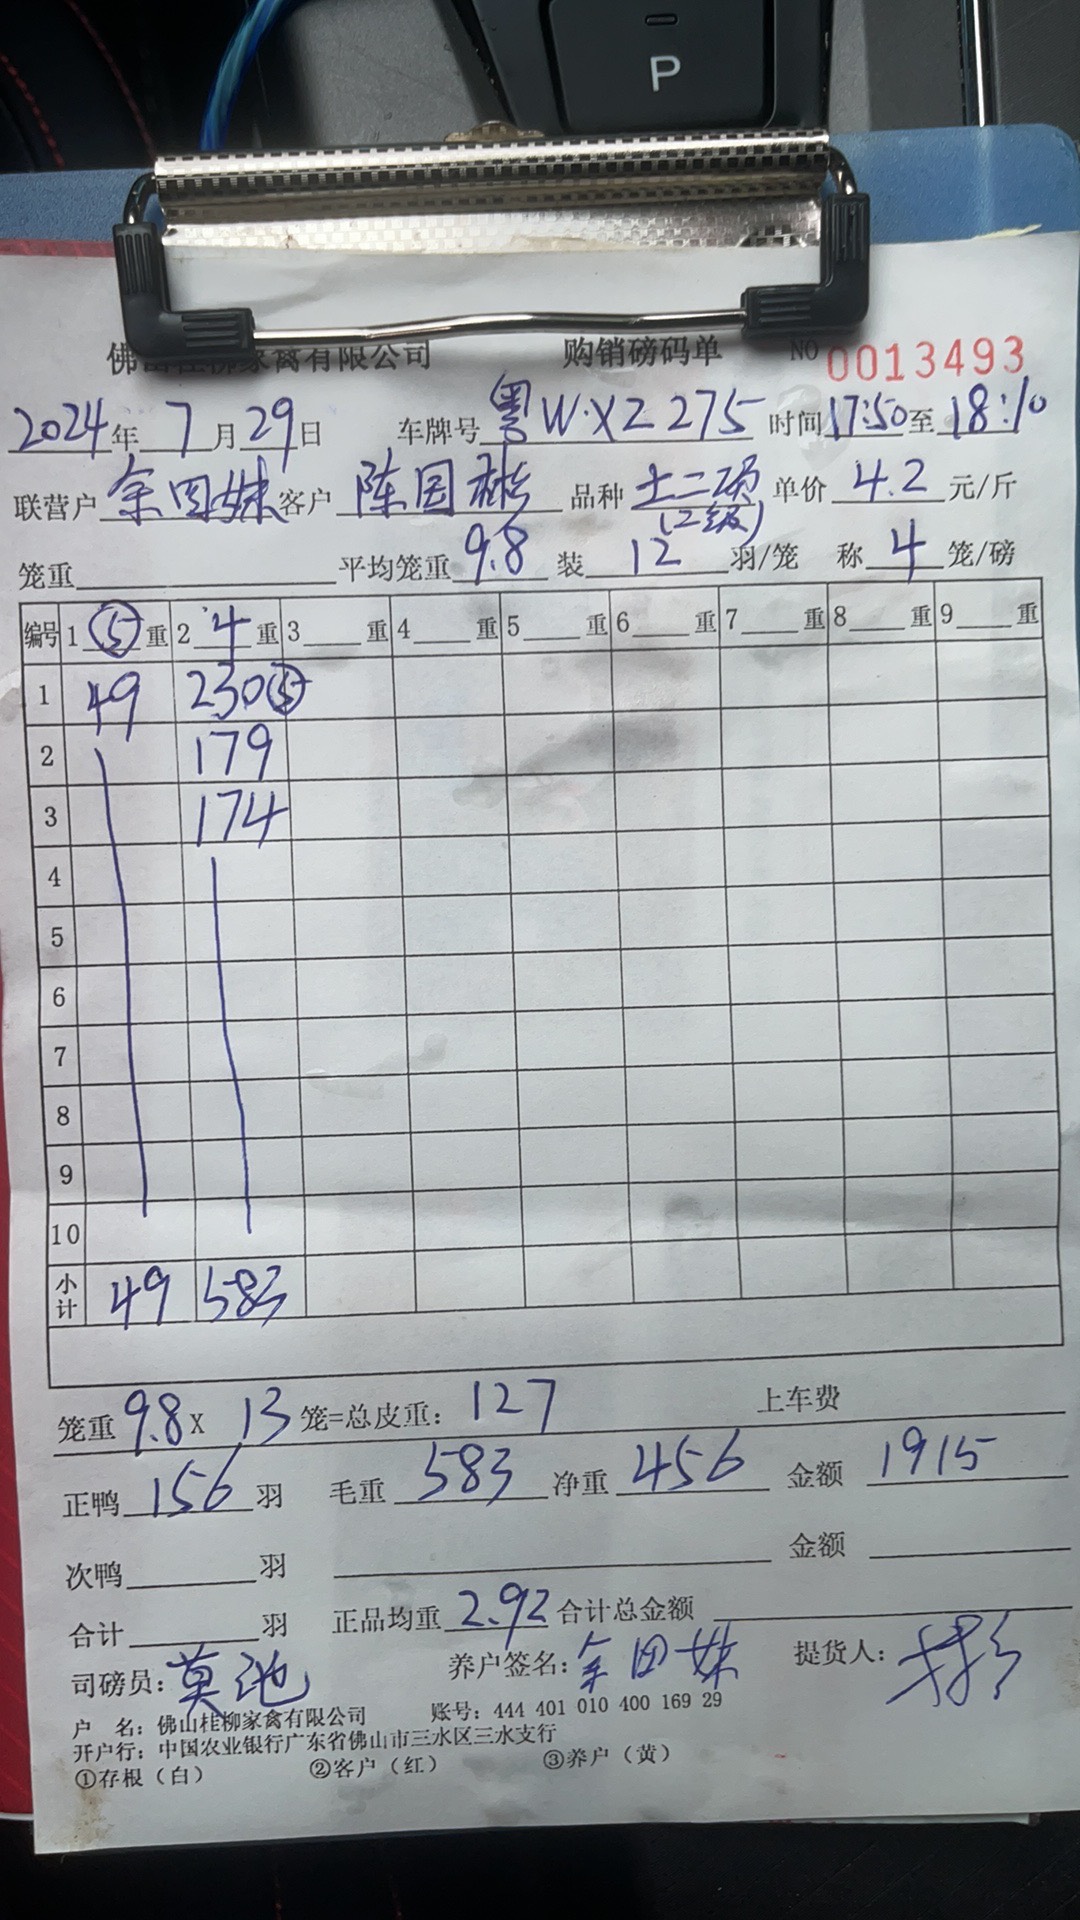 P
佛山桂柳家禽有限公司 购销磅码单 NO 0013493
2024年7月29日 车牌号 粤W·XZ275 时间17:50至18:10
联营户 余田妹 客户 陈国彬 品种 土二项 单价 4.2 元/斤
(2级)
笼重 平均笼重 9.8 装 12 羽/笼 称 4 笼/磅
编号 1 ⑤ 重 2 4 重 3 重 4 重 5 重 6 重 7 重 8 重 9 重
1 49 230⑤
2 179
3 174
4
5
6
7
8
9
10
小计 49 583
笼重 9.8 X 13 笼=总皮重: 127 上车费
正鸭 156 羽 毛重 583 净重 456 金额 1915
次鸭 羽 金额
合计 羽 正品均重 2.92 合计总金额
司磅员: 莫池 养户签名: 余田妹 提货人:
户 名: 佛山桂柳家禽有限公司 账号: 444 401 010 400 169 29
开户行: 中国农业银行广东省佛山市三水区三水支行
①存根（白） ②客户（红） ③养户（黄）